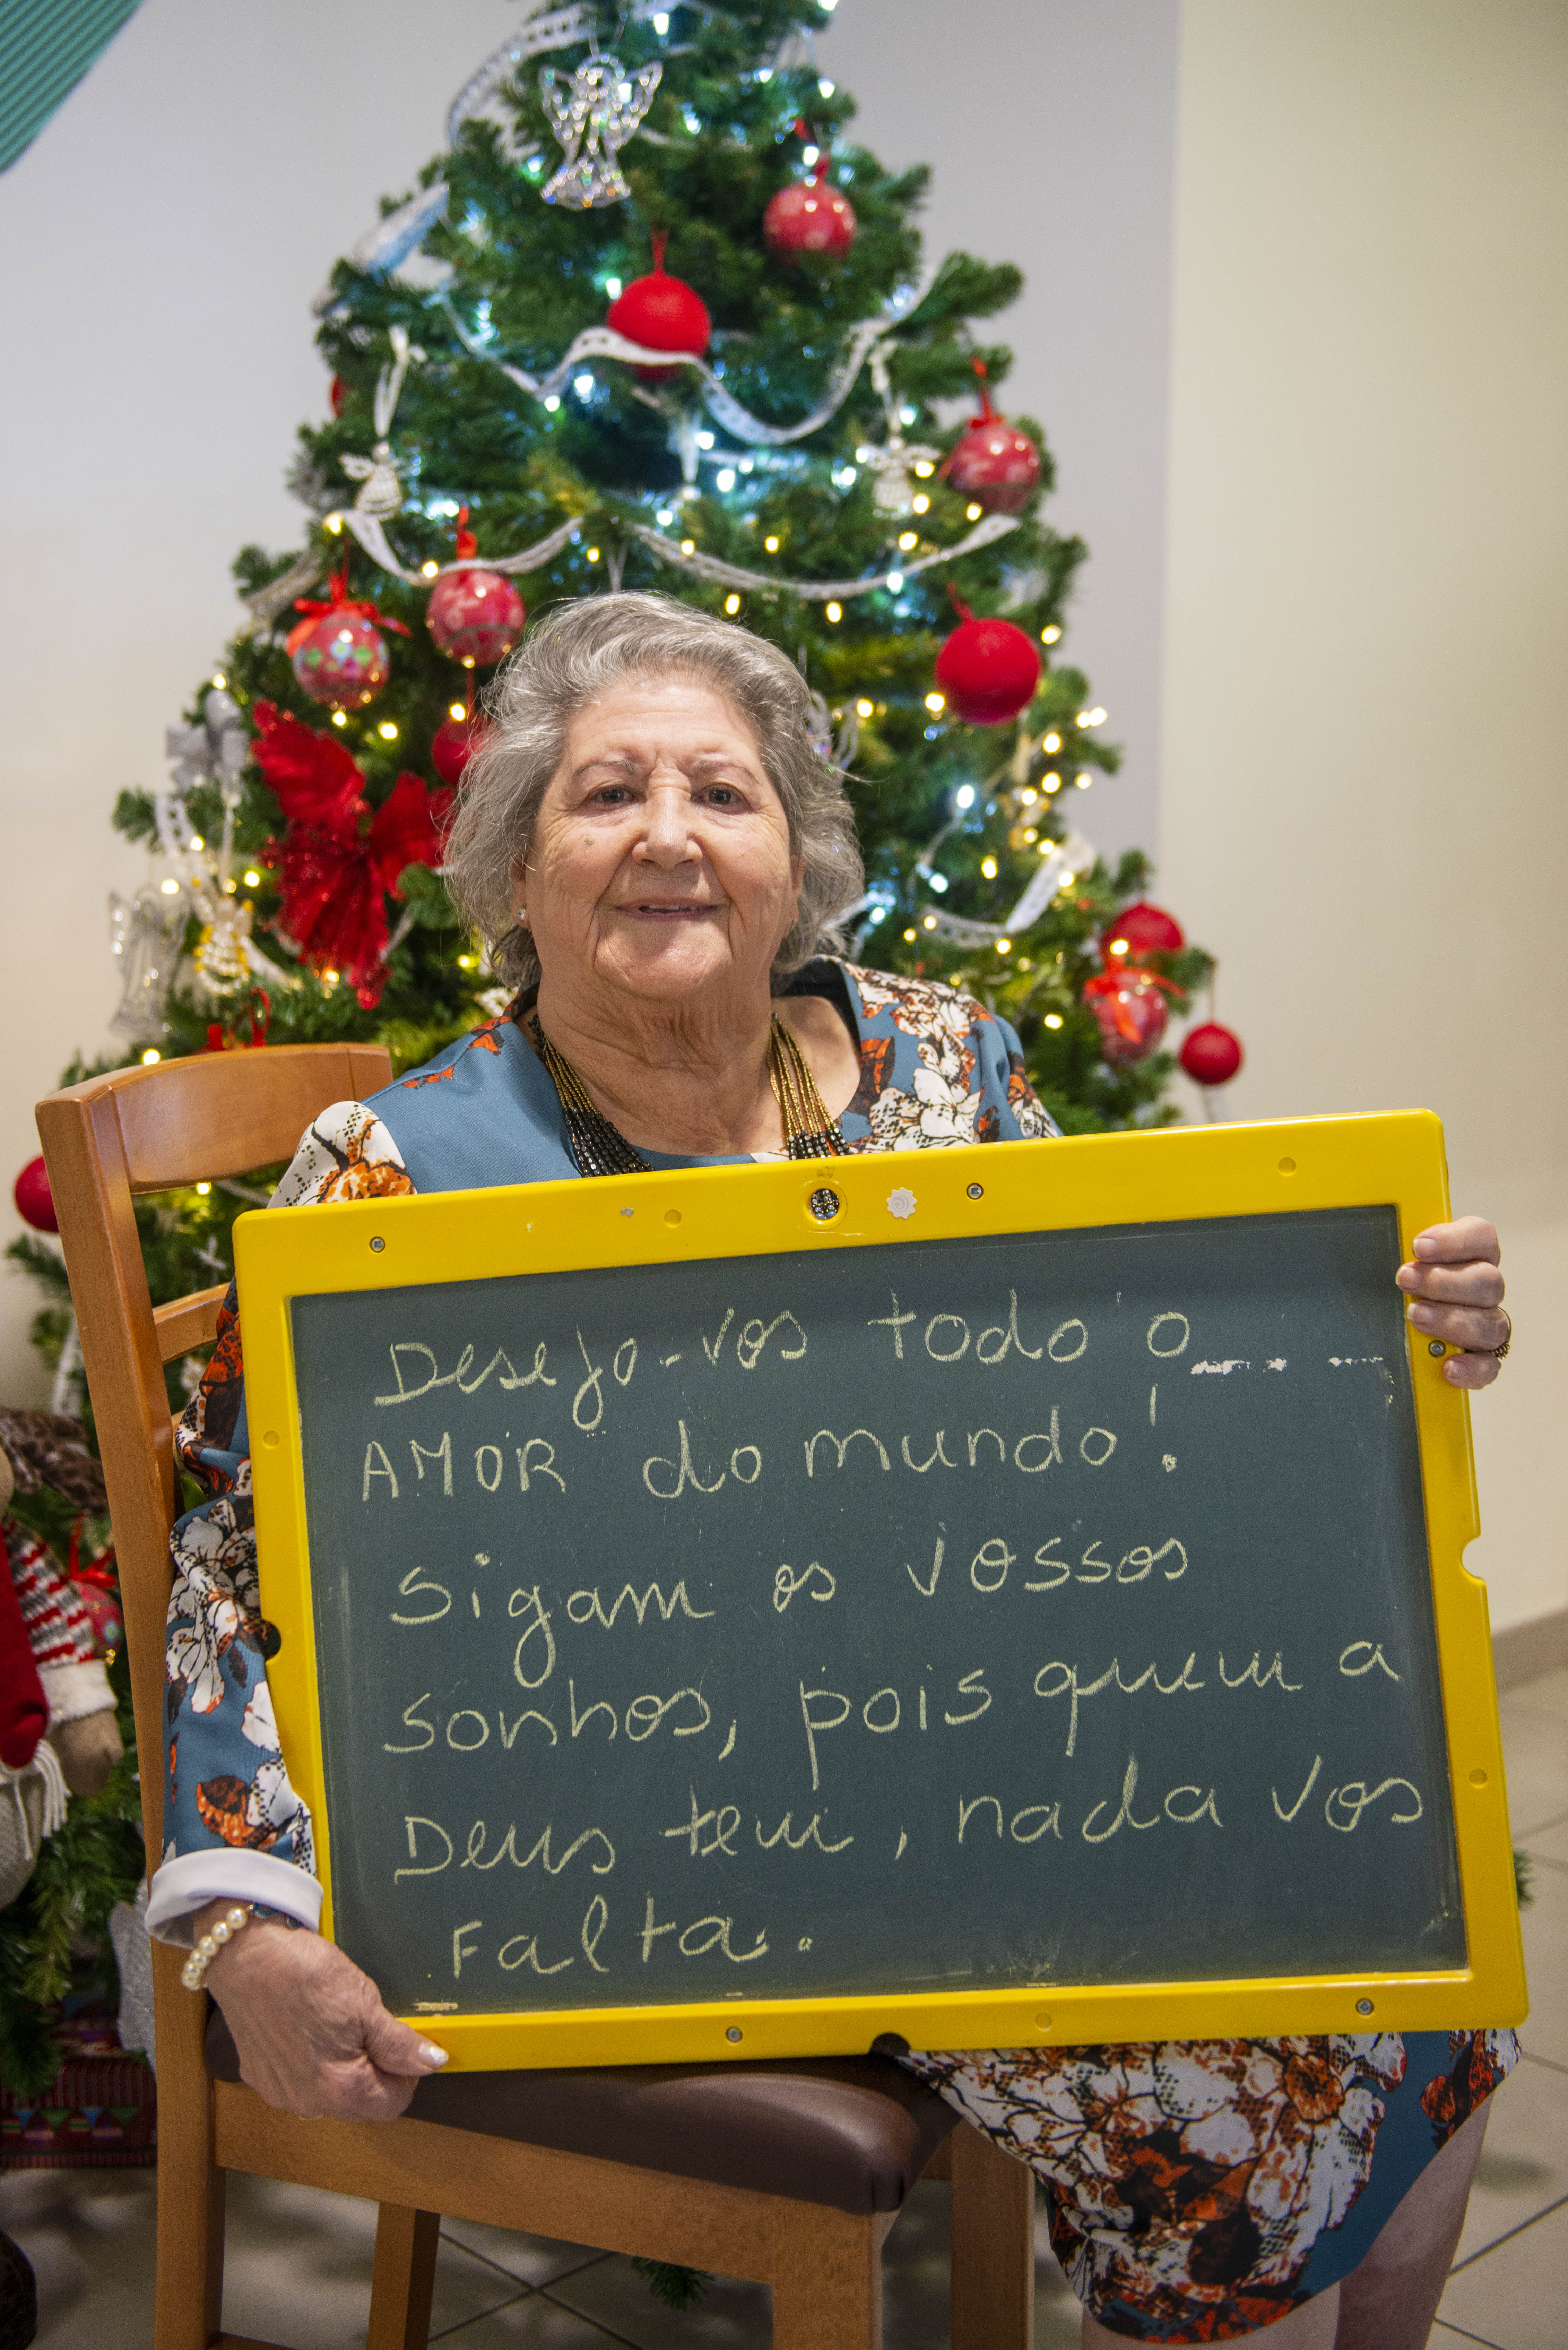 Desejo-vos todo o
AMOR do mundo!
Sigam os vossos
sonhos, pois quem a
Deus tem, nada vos
Falta.